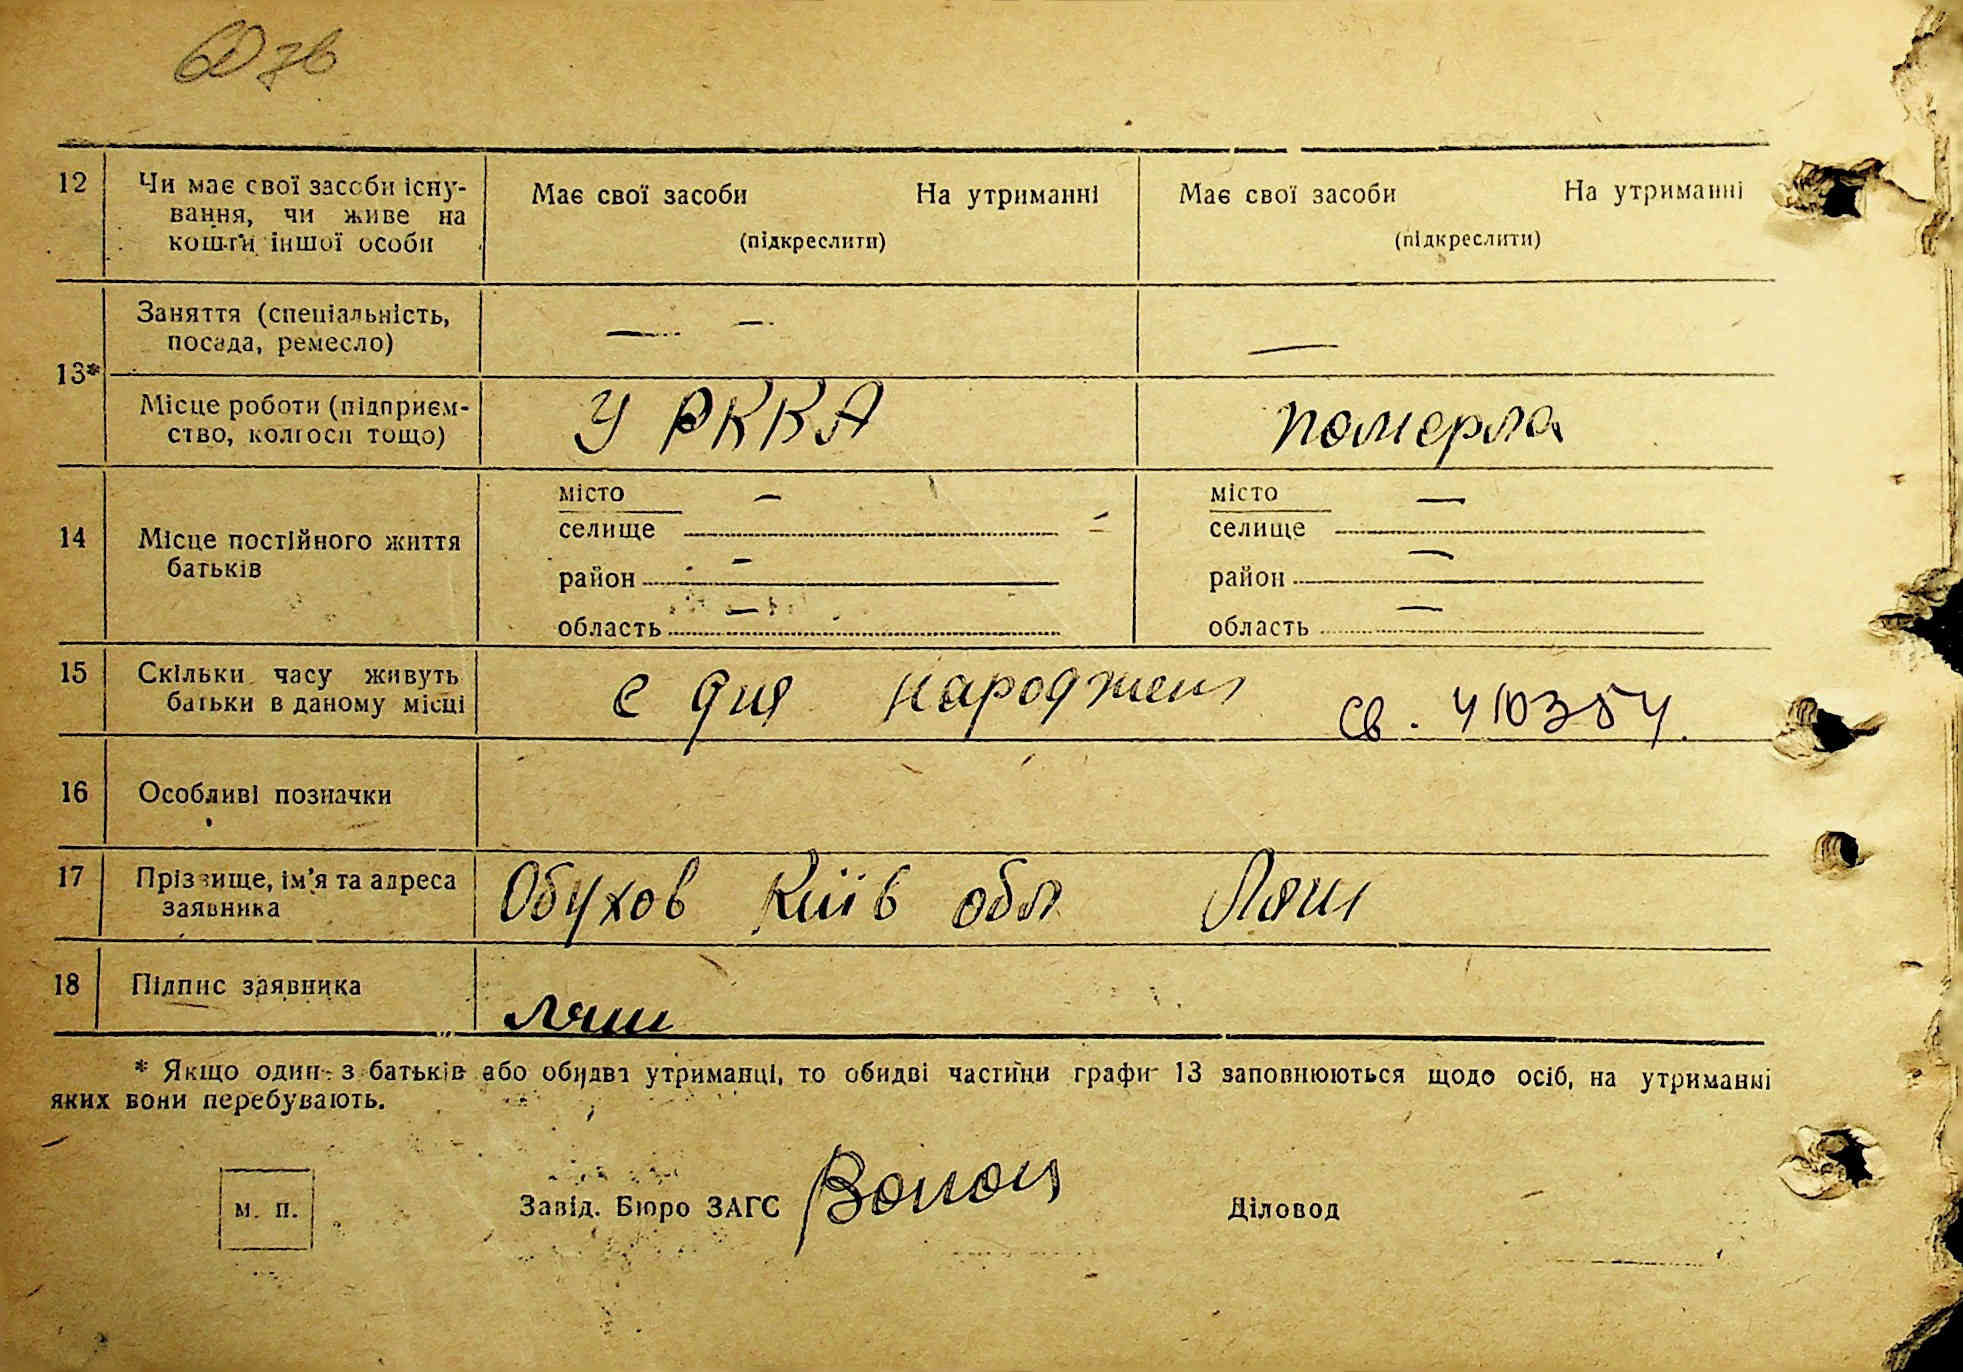 60 зв
12 Чи має свої засоби існу- Має свої засоби На утриманні Має свої засоби На утриманні
вання, чи живе на
кошти іншої особи (підкреслити) (підкреслити)
13* Заняття (спеціальність, — — —
посада, ремесло)
Місце роботи (підприєм- У РККА померла
ство, колгосп тощо)
14 Місце постійного життя батьків
місто — місто —
селище селище
район — район —
область — область —
15 Скільки часу живуть є дня народжен св. 410354.
батьки в даному місці
16 Особливі позначки
17 Прізвище, ім'я та адреса Обухов Київ обл Ляш
заявника
18 Підпис заявника Ляш
* Якщо один з батьків або обидва утриманці, то обидві частини графи 13 заповнюються щодо осіб, на утриманні
яких вони перебувають.
м. п. Завід. Бюро ЗАГС Діловод